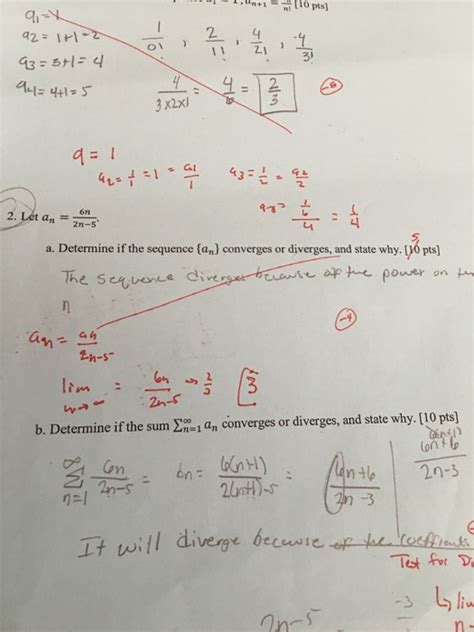 [10 pts]
a1 = 1
a2 = 1+1=2
a3 = 3+1=4
a4 = 4+1=5
1/0! , 2/1! , 4/2! , 4/3!
4/3x2x1 = 4/6 = 2/3
a = 1
a2 = 1/1 = 1 = a1/1 a3 = 1/2 = a2/2
1/4
2. Let an = 6n/2n−5.
a. Determine if the sequence {an} converges or diverges, and state why. [10 pts]
5
The sequence diverges because of the power on the
n
-4
2n-5
lim n→∞ = 6n/2n-5 → 3
b. Determine if the sum ∑∞n=1 an converges or diverges, and state why. [10 pts]
∞∑n=1 6n/2n-5 = bn = 6(n+1)/2(n+1)-5 = 6n+6/2n-3
6(n+1)
6n+6
2n-3
It will diverge because of the coefficients
Test for
-3
2n-5